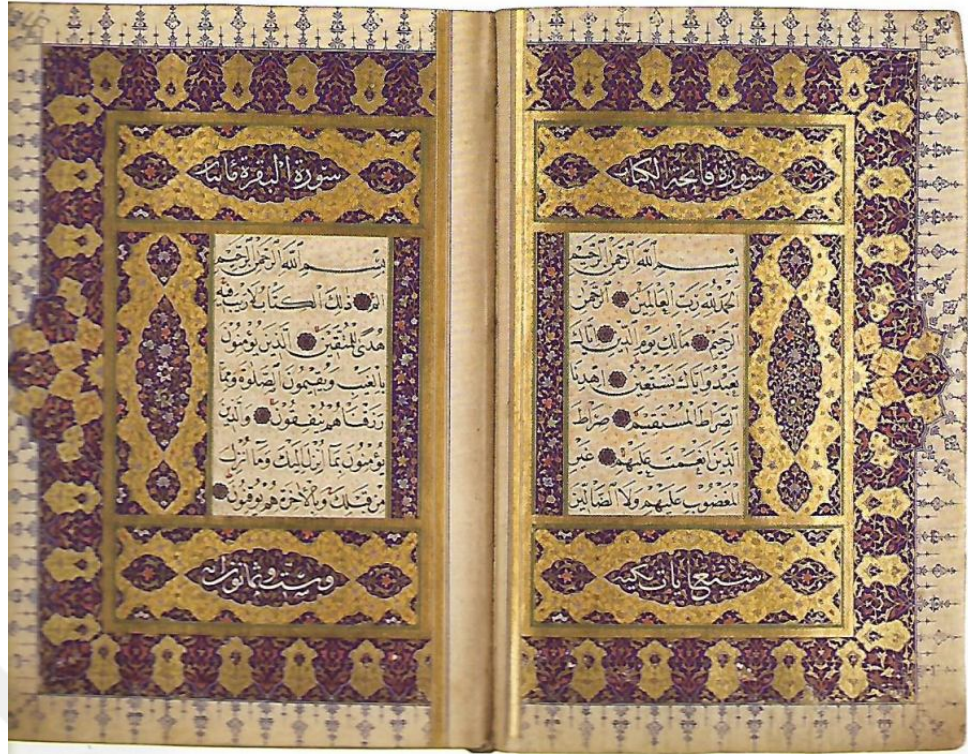 سُورَةُ فَاتِحَةِ الكِتَابِ
بِسْمِ ٱللَّهِ ٱلرَّحْمٰنِ ٱلرَّحِيمِ
اَلْحَمْدُ لِلّٰهِ رَبِّ الْعَالَمِينَ ۝ اَلرَّحْمٰنِ
الرَّحِيمِ ۝ مَالِكِ يَوْمِ الدِّينِ ۝ اِيَّاكَ
نَعْبُدُ وَاِيَّاكَ نَسْتَعِينُ ۝ اِهْدِنَا
الصِّرَاطَ الْمُسْتَقِيمَ ۝ صِرَاطَ
الَّذِينَ اَنْعَمْتَ عَلَيْهِمْ ۝ غَيْرِ
الْمَغْضُوبِ عَلَيْهِمْ وَلَا الضَّالِّينَ
سَبْعُ اٰيَاتٍ مَكِّيَّة
سُورَةُ الْبَقَرَةِ مَائَتَانِ
بِسْمِ ٱللَّهِ ٱلرَّحْمٰنِ ٱلرَّحِيمِ
الٓمٓ ۝ ذٰلِكَ الْكِتَابُ لَارَيْبَ فِيهِ
هُدًى لِلْمُتَّقِينَ ۝ اَلَّذِينَ يُؤْمِنُونَ
بِالْغَيْبِ وَيُقِيمُونَ الصَّلٰوةَ وَمِمَّا
رَزَقْنَاهُمْ يُنْفِقُونَ ۝ وَالَّذِينَ
يُؤْمِنُونَ بِمَٓا اُنْزِلَ اِلَيْكَ وَمَٓا اُنْزِلَ
مِنْ قَبْلِكَ وَبِالْاٰخِرَةِ هُمْ يُوقِنُونَ ۝
وَسِتٌّ وَثَمَانُونَ اٰيَة